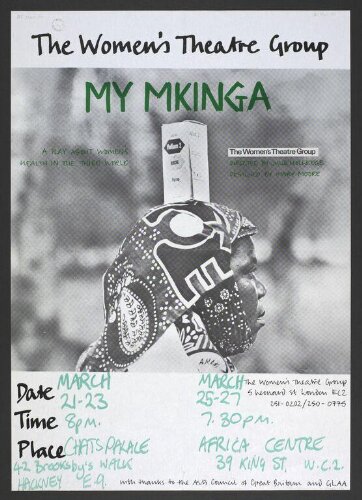 The Women's Theatre Group
MY MKINGA
A PLAY ABOUT WOMENS
HEALTH IN THE THIRD WORLD
The Women's Theatre Group
DIRECTED BY JULIE HOLLEDGE
DESIGNED BY MARY MOORE
Date MARCH 21-23
MARCH 25-27
Time 8pm.
7.30pm.
Place CHATS PALACE
42 Brooksby's WALK
HACKNEY E.9.
AFRICA CENTRE
39 KING ST, W.C.2.
The Women's Theatre Group
5 Leonard St London EC2
251-0202/250-0775
with thanks to the Arts Council of Great Britain and GLAA